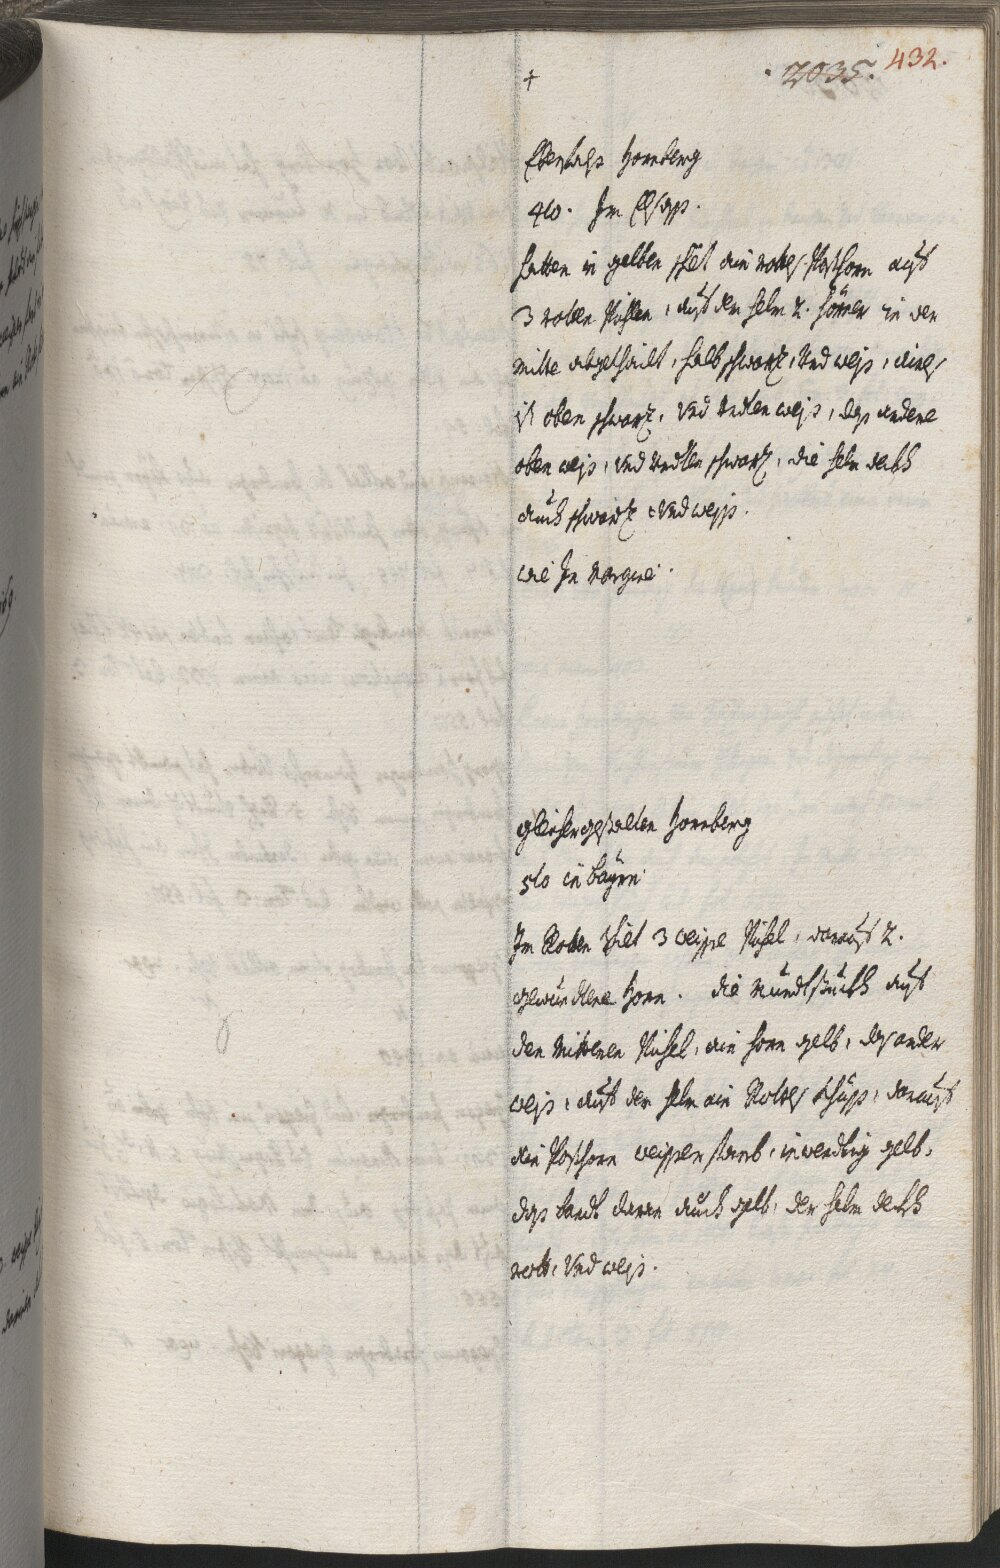 2035. 432.
+
Ebenfahls Hornberg
4to. Im Elsass.
hatten in gelben schilt ein rotes Posthorn auf
3 roten Pühlen, auf den helm 2. hörner in der
mitte abgetheilt, halb schwartz, und weiss, eines
ist oben schwartz, und undten weiss, das andere
oben weiss, und undten schwartz, die helm dekh
auch schwartz und weiss.
wie In Margine.
gleichergestalten Hornberg
5to in Bayrn
Im Roten schilt 3 weisse Pühel, darauf 2.
gewundtene Horn. die Mundtstückh auf
den mittern Pühel, ein horn gelb, das ander
weiss, auf den helm ein Rotes Küss, darauf
ein Posthorn weisser farb, inwendig gelb,
das bandt daran auch gelb, der helm dekh
roth, und weiss.